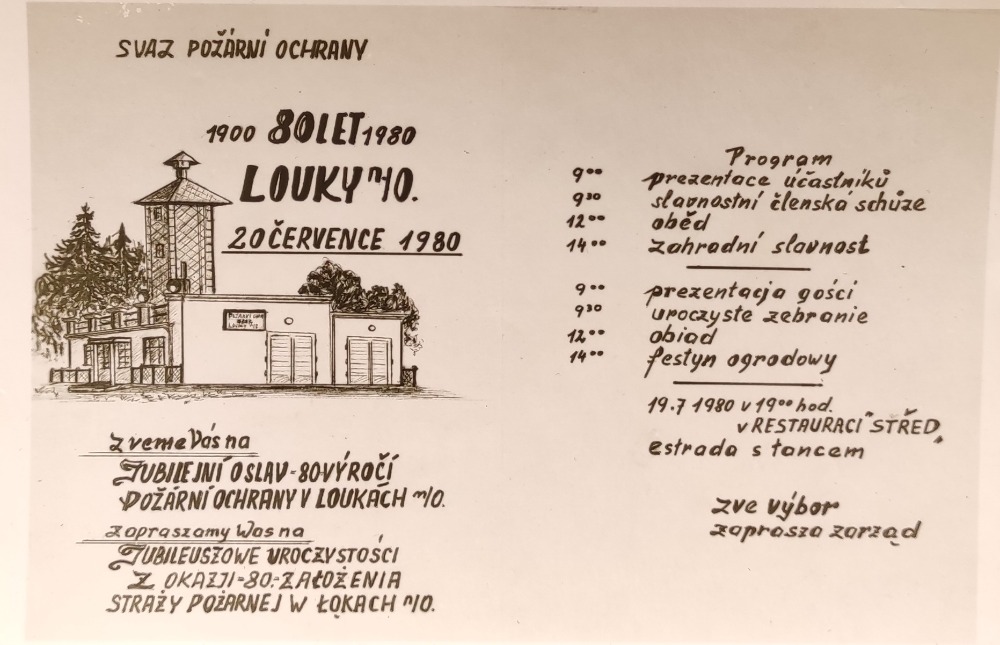 SVAZ POŽÁRNÍ OCHRANY
1900 80 LET 1980
LOUKY n/O.
20 ČERVENCE 1980
POŽÁRNÍ
LOUKY n/O
zveme Vás na
JUBILEJNÍ OSLAV-80-VÝROČÍ
POŽÁRNÍ OCHRANY V LOUKÁCH n/O.
zapraszamy Was na
JUBILEUSZOWE UROCZYSTOŚCI
Z OKAZJI-80.-ZAŁOŻENIA
STRAŻY POŻARNEJ W ŁĄKACH n/O.
Program
9⁰⁰ prezentace účastníků
9³⁰ slavnostní členská schůze
12⁰⁰ oběd
14⁰⁰ zahradní slavnost
9⁰⁰ prezentacja gości
9³⁰ uroczyste zebranie
12⁰⁰ obiad
14⁰⁰ festyn ogrodowy
19.7 1980 v 19⁰⁰ hod.
v RESTAURACI "STŘED"
estrada s tancem
zve výbor
zaprasza zarząd